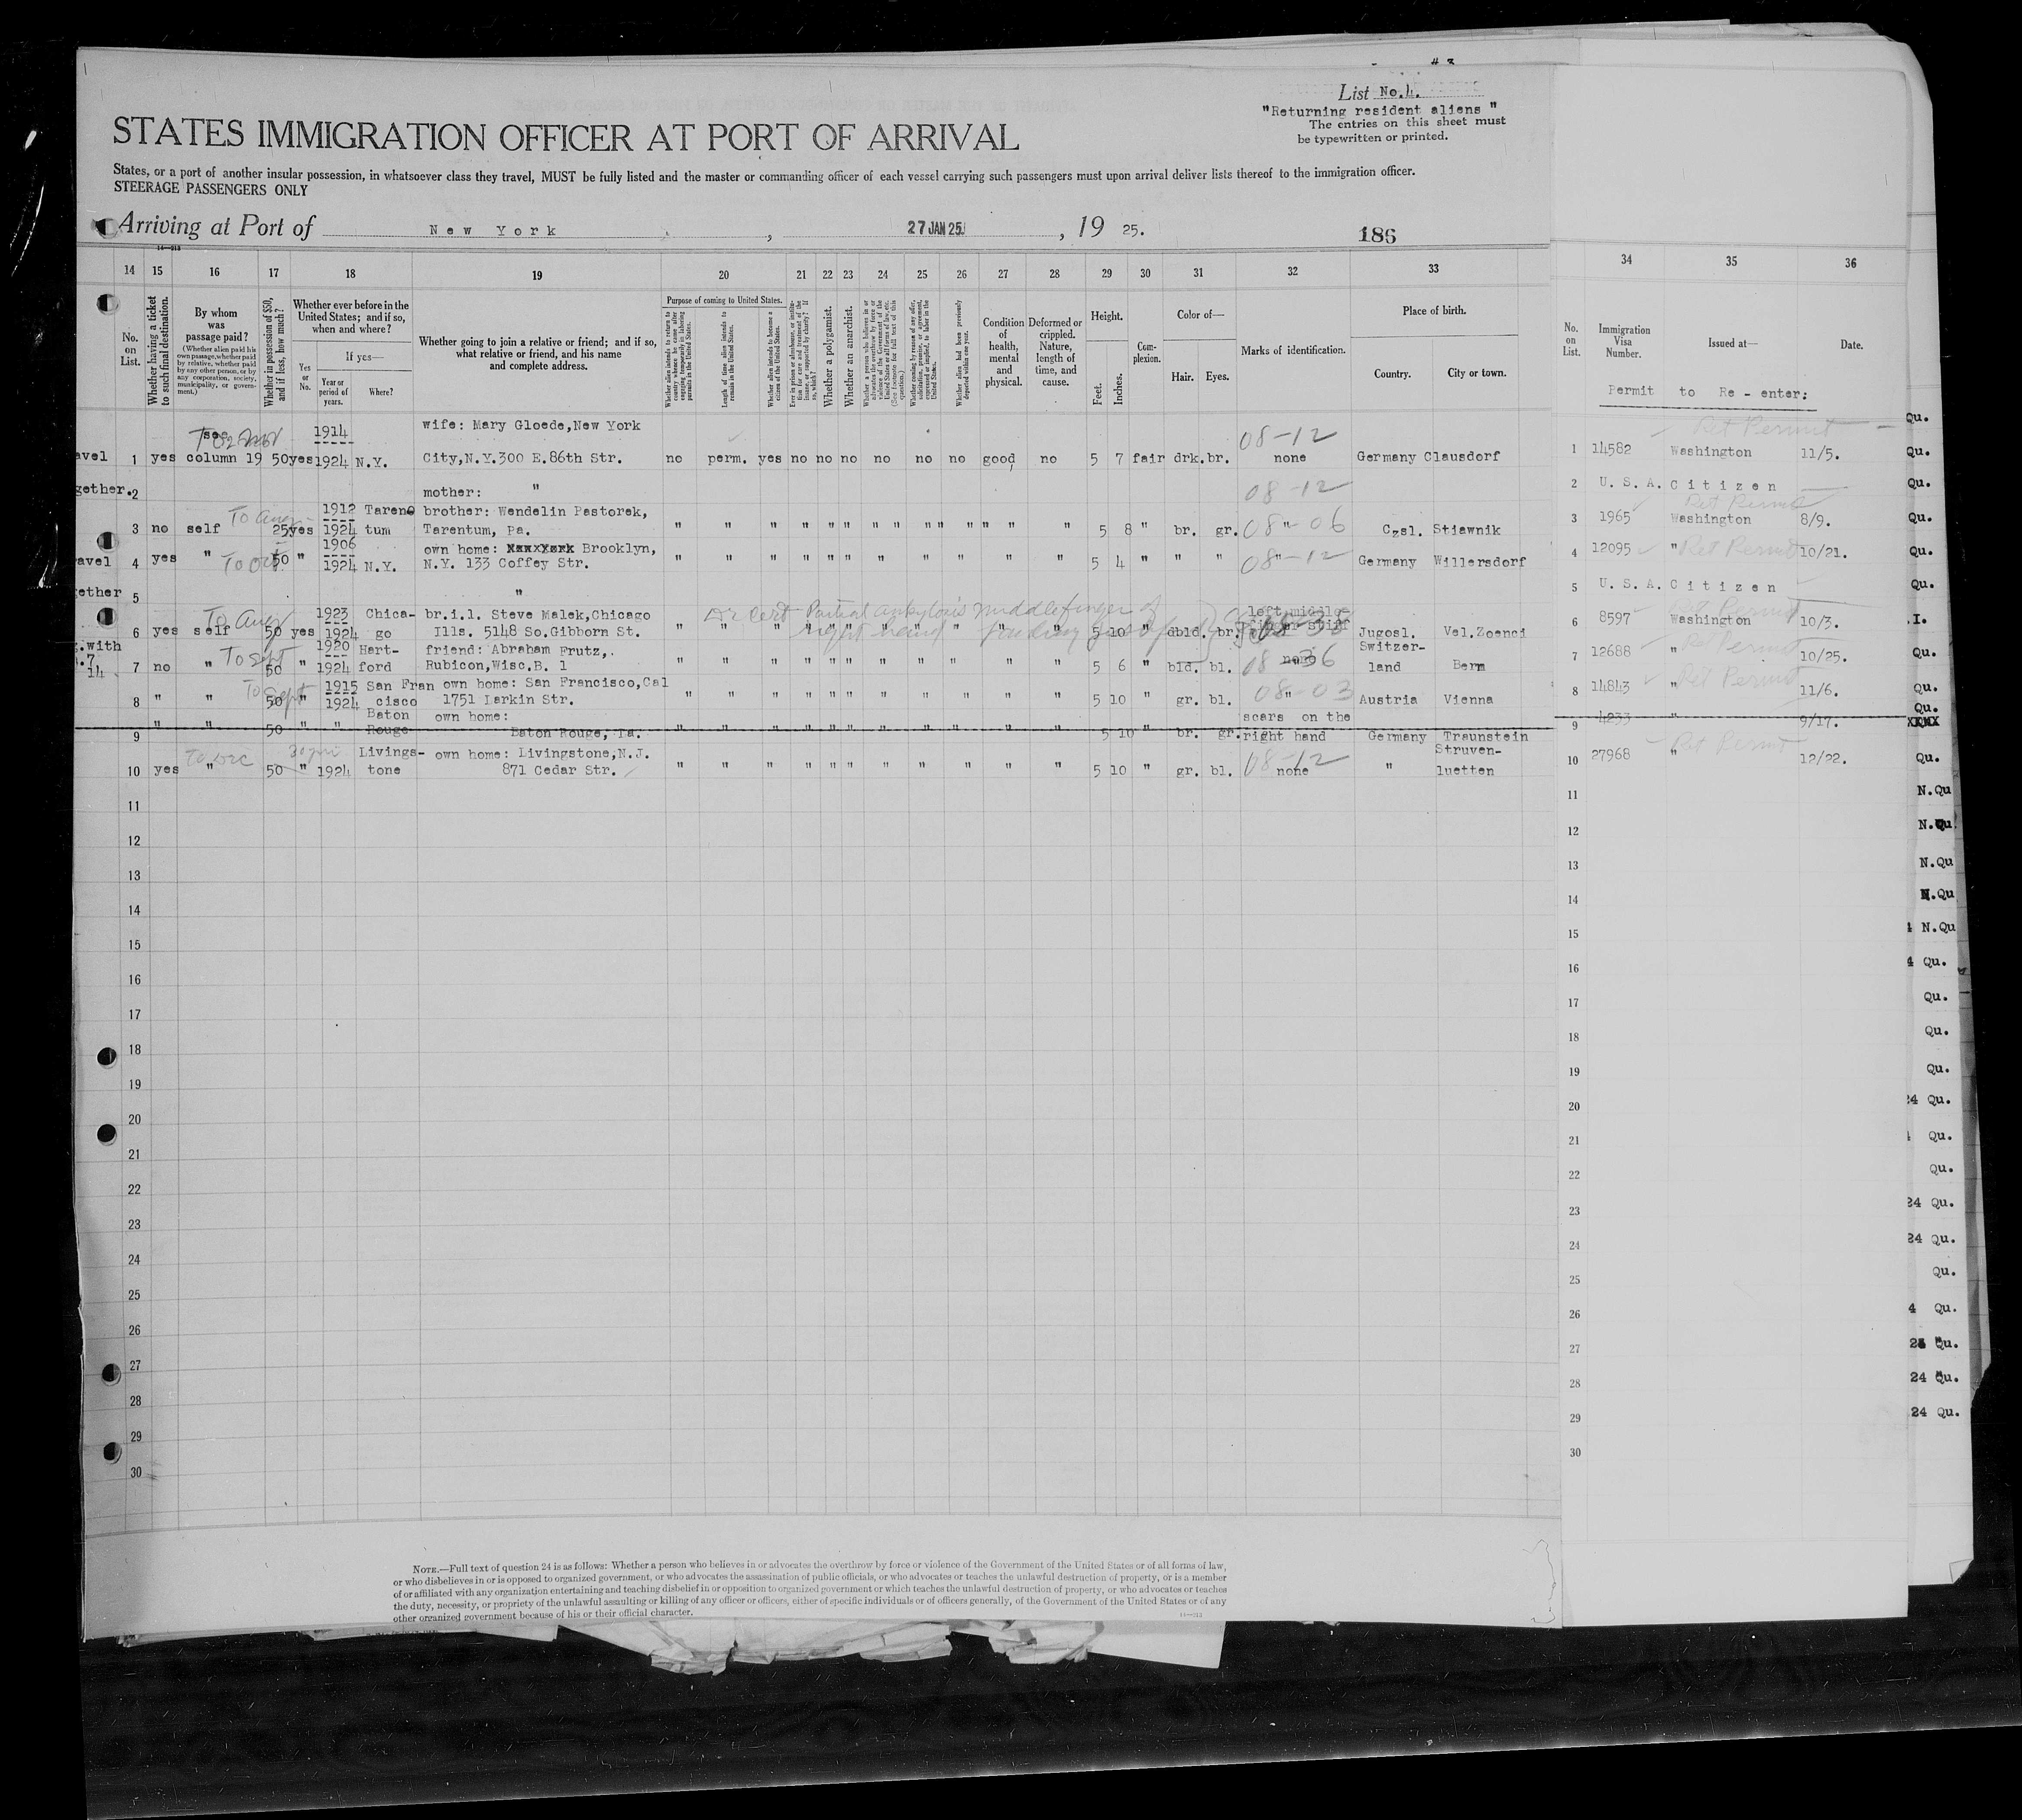 List No.4.
"Returning resident aliens"
The entries on this sheet must
be typewritten or printed.
STATES IMMIGRATION OFFICER AT PORT OF ARRIVAL
States, or a port of another insular possession, in whatsoever class they travel, MUST be fully listed and the master or commanding officer of each vessel carrying such passengers must upon arrival deliver lists thereof to the immigration officer.
STEERAGE PASSENGERS ONLY
Arriving at Port of New York, 27 JAN 25, 19 25.
186
14 15 16 17 18 19 20 21 22 23 24 25 26 27 28 29 30 31 32 33 34 35 36
No. on List.
Whether having a ticket to such final destination.
By whom was passage paid?
(Whether alien paid his own passage, whether paid by relative, whether paid by any other person, or by any corporation, society, municipality, or government.)
Whether in possession of $50, and if less, how much?
Whether ever before in the United States; and if so, when and where?
Yes or No.
If yes—
Year or period of years.
Where?
Whether going to join a relative or friend; and if so, what relative or friend, and his name and complete address.
Purpose of coming to United States.
Whether alien intends to return to country whence he came after engaging temporarily in laboring pursuits in the United States.
Length of time alien intends to remain in the United States.
Whether alien intends to become a citizen of the United States.
Ever in prison or almshouse, or institution for care and treatment of the insane, or supported by charity? If so, which?
Whether a polygamist.
Whether an anarchist.
Whether alien had been previously deported within one year.
Condition of health, mental and physical.
Deformed or crippled. Nature, length of time, and cause.
Height.
Feet.
Inches.
Complexion.
Color of—
Hair.
Eyes.
Marks of identification.
Place of birth.
Country.
City or town.
No. on List.
Immigration Visa Number.
Issued at—
Date.
Permit to Re - enter:
avel 1 yes see column 19 50 yes 1914 1924 N.Y. wife: Mary Gloede, New York City, N.Y. 300 E. 86th Str. no perm. yes no no no no no no good no 5 7 fair drk. br. 08-12 none Germany Clausdorf 1 14582 Washington 11/5. Qu.
gether. 2 mother: " 08-12 2 U. S. A. Citizen Qu.
3 no self 25 yes 1912 1924 Tarentum brother: Wendelin Pastorek, Tarentum, Pa. " " " " " " " " " " " 5 8 " br. gr. 08-06 " Czsl. Stiawnik 3 1965 Washington 8/9. Qu.
avel 4 yes " 50 " 1906 1924 N.Y. own home: Brooklyn, N.Y. 133 Coffey Str. " " " " " " " " " " " 5 4 " " " 08-12 " Germany Willersdorf 4 12095 " Ret Permit 10/21. Qu.
ether 5 " 5 U. S. A. Citizen Qu.
6 yes self To Aug 50 yes 1923 1924 Chicago br.i.l. Steve Malek, Chicago Ills. 5148 So. Gibborn St. " " " " " " " " " " " 5 10 " dbld. br. left middle finger stiff Jugosl. Vel.Zoenci 6 8597 Washington 10/3. .I.
Dr cert Partial ankylosis middle finger of right hand
.with 7 no " To Sept 50 " 1920 1924 Hartford friend: Abraham Frutz, Rubicon, Wisc. B. 1 " " " " " " " " " " " 5 6 " bld. bl. 08-36 none Switzerland Bern 7 12688 " 10/25. Qu.
8 " " To Sept 50 " 1915 1924 San Francisco own home: San Francisco, Cal 1751 Larkin Str. " " " " " " " " " " " 5 10 " gr. bl. 08-03 " Austria Vienna 8 14843 " 11/6. Qu.
9 " " 50 " " Baton Rouge own home: Baton Rouge, La. " " " " " " " " " " " 5 10 " br. gr. scars on the right hand Germany Traunstein 9 4233 " 9/17. Qu.
10 yes " 50 " 1924 Livingstone own home: Livingstone, N.J. 871 Cedar Str. " " " " " " " " " " " 5 10 " gr. bl. 08-12 none " Struvenluetten 10 27968 " Ret Permit 12/22. Qu.
11 11 N.Qu
12 12 N.Qu.
13 13 N.Qu
14 14 N.Qu
15 15 N.Qu
16 16 4 Qu.
17 17 Qu.
18 18 Qu.
19 19 Qu.
20 20 24 Qu.
21 21 Qu.
22 22 Qu.
23 23 24 Qu.
24 24 24 Qu.
25 25 Qu.
26 26 4 Qu.
27 27 Qu.
28 28 24 Qu.
29 29 24 Qu.
30 30
NOTE.—Full text of question 24 is as follows: Whether a person who believes in or advocates the overthrow by force or violence of the Government of the United States or of all forms of law,
or who disbelieves in or is opposed to organized government, or who advocates the assassination of public officials, or who advocates or teaches the unlawful destruction of property, or is a member
of or affiliated with any organization entertaining and teaching disbelief in or opposition to organized government or which teaches the unlawful destruction of property, or who advocates or teaches
the duty, necessity, or propriety of the unlawful assaulting or killing of any officer or officers, either of specific individuals or of officers generally, of the Government of the United States or of any
other organized government because of his or their official character.